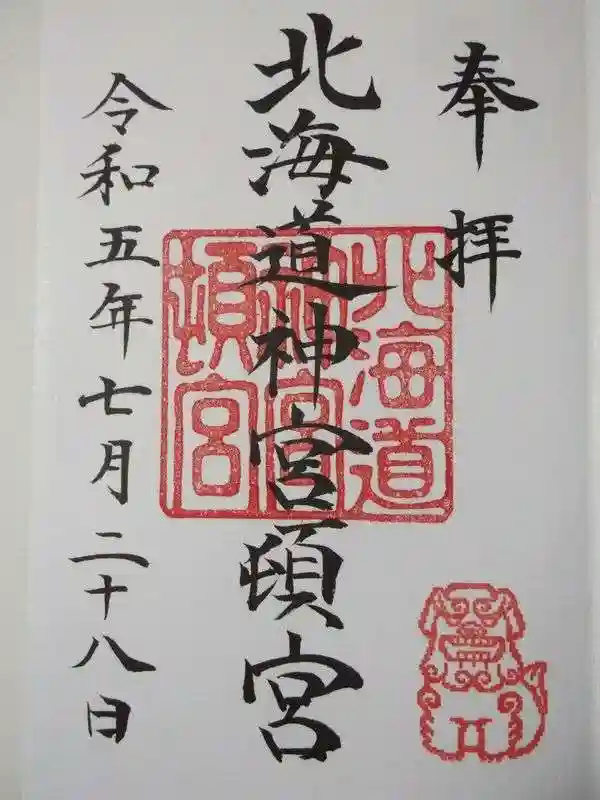 奉拝
北海道神宮頓宮
北海道
神宮
頓宮
令和五年七月二十八日